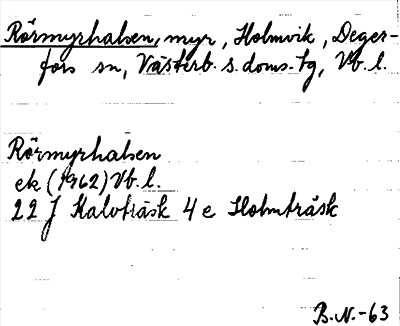 Rörmyrhalsen, myr, Holmvik, Deger-
fors sn, Västerb. s. doms. tg, Vb. l.
Rörmyrhalsen
ek (1962) Vb. l.
22 J Kalvträsk 4 e Holmträsk
B.N.-63